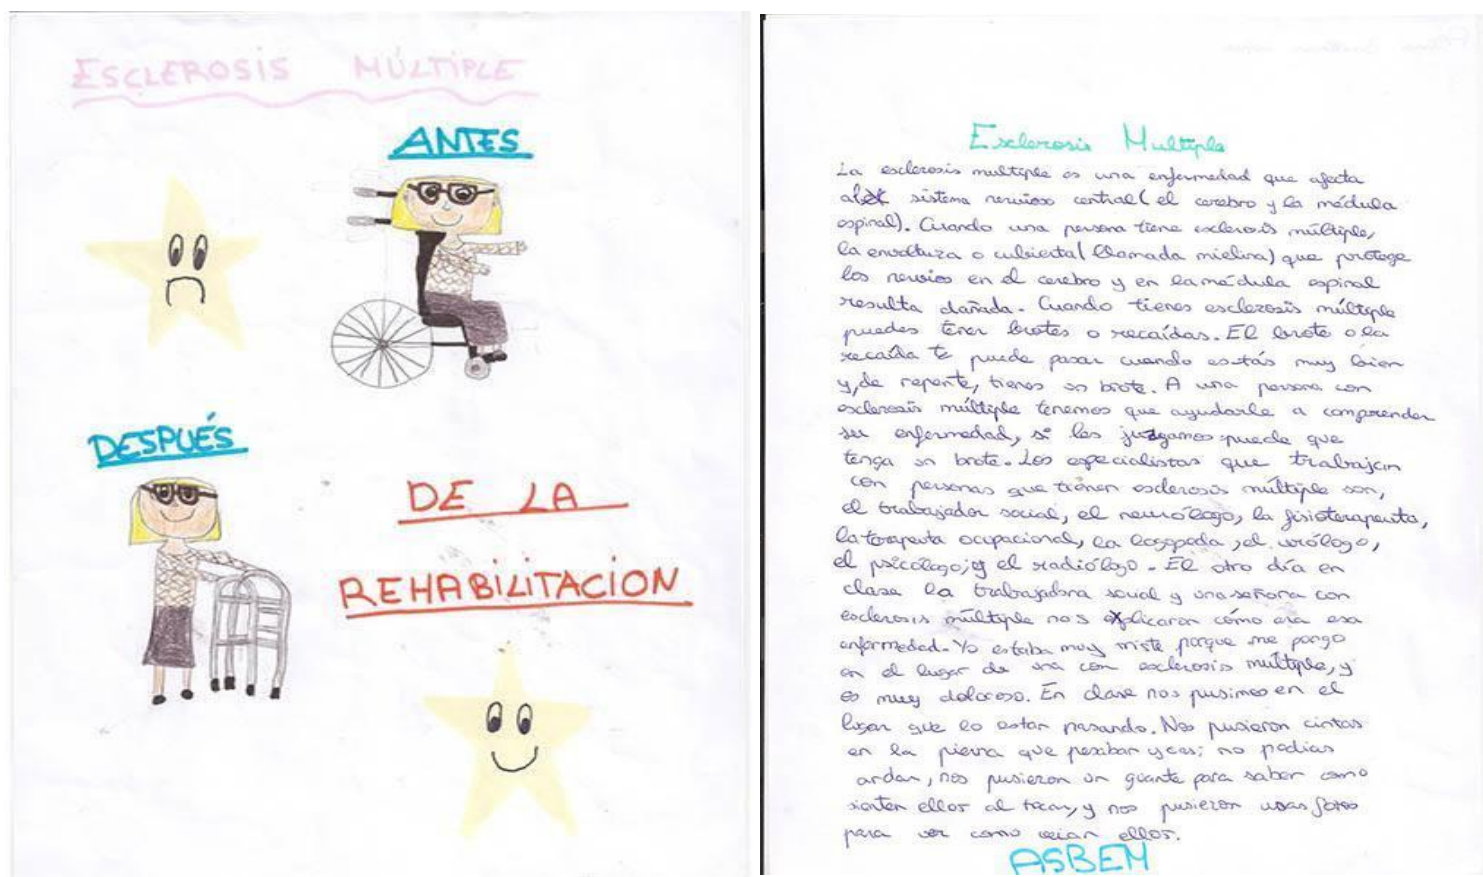 ESCLEROSIS MÚLTIPLE
ANTES
DESPUÉS
DE LA
REHABILITACION
Esclerosis Multiple
La esclerosis multiple es una enfermedad que afecta
al sistema nervioso central (el cerebro y la médula
espinal). Cuando una persona tiene esclerosis múltiple,
la envoltura o cubierta (llamada mielina) que protege
los nervios en el cerebro y en la médula espinal
resulta dañada. Cuando tienes esclerosis múltiple
puedes tener brotes o recaídas. El brote o la
recaída te puede pasar cuando estás muy bien
y, de repente, tienes un brote. A una persona con
esclerosis múltiple tenemos que ayudarle a comprender
su enfermedad, si les juzgamos puede que
tenga un brote. Los especialistas que trabajan
con personas que tienen esclerosis múltiple son,
el trabajador social, el neurólogo, la fisioterapeuta,
la terapeuta ocupacional, la logopeda, el urólogo,
el psicólogo, y el radiólogo. El otro día en
clase la trabajadora social y una señora con
esclerosis múltiple nos explicaron cómo era esa
enfermedad. Yo estaba muy triste porque me pongo
en el lugar de una con esclerosis multiple, y
es muy doloroso. En clase nos pusimos en el
lugar que lo estan pasando. Nos pusieron cintas
en la pierna que pesaban y casi no podias
andar, nos pusieron un guante para saber como
sienten ellos al tocar, y nos pusieron unas
para ver como veian ellos.
ASBEM